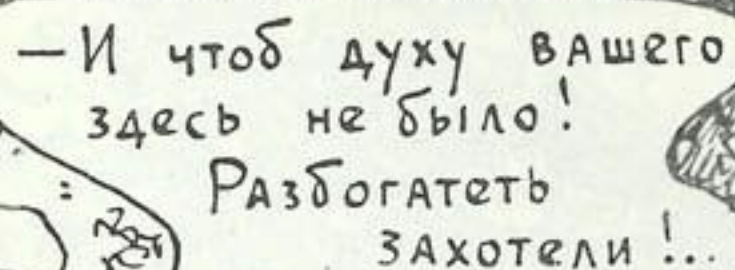 — И чтоб духу вашего
здесь не было!
Разбогатеть
захотели!..